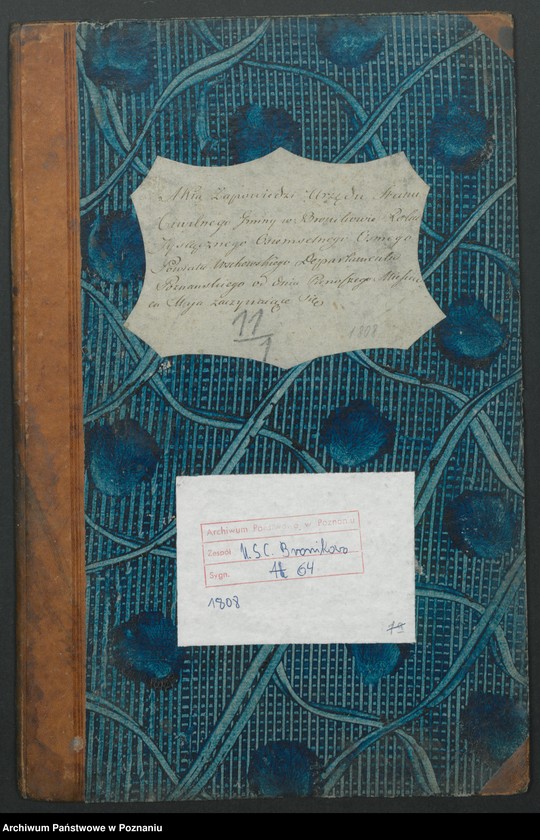 Akta Zapowiedzi Urzędu Stanu
Cywilnego Gminy w Bronikowie Roku
Tysiącznego Osmsetnego Osmego
Powiatu Wschowskiego Departamentu
Poznanskiego od dnia Pierwszego Miesią-
ca Maja zaczynaiące się
11
1
1808
Archiwum Państwowe w Poznaniu
Zespół USC. Bronikowo
Sygn. 64
1808
79
Archiwum Państwowe w Poznaniu